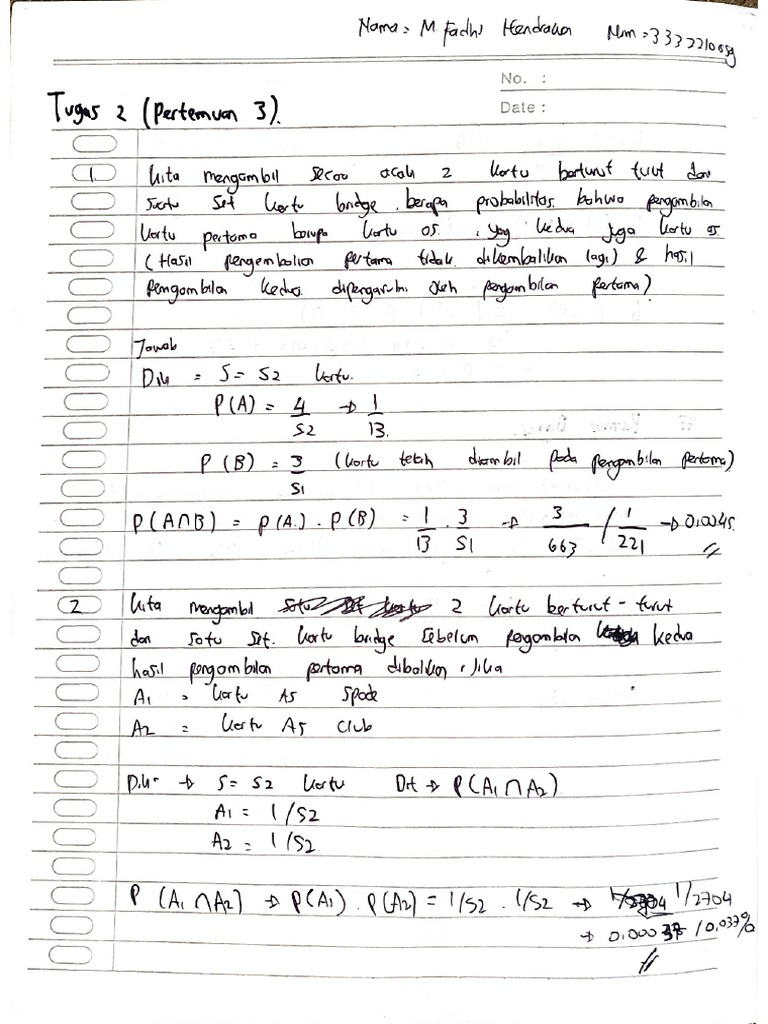 Nama = M Fadhi Hendrawan Nim = 3332210059
No. :
Date :
Tugas 2 (Pertemuan 3).
1. Kita mengambil secara acak 2 kartu berturut turut dari
suatu set kartu bridge. berapa probabilitas bahwa pengambilan
kartu pertama berupa kartu as. yang kedua juga kartu as
(Hasil pengembalian pertama tidak dikembalikan lagi) & hasil
pengambilan kedua dipengaruhi oleh pengambilan pertama)
Jawab
Dik = S = 52 kartu.
P(A) = 4/52 → 1/13.
P(B) = 3/51 (kartu telah diambil pada pengambilan pertama)
P(A∩B) = P(A) . P(B) = 1/13 . 3/51 → 3/663 / 1/221 → 0,0045
2 Kita mengambil 2 kartu berturut - turut
dari satu set. kartu bridge sebelum pengambilan kedua
hasil pengambilan pertama dibalikan, Jika
A1 = kartu AS Spade
A2 = kartu AS Club
Dik → S = 52 kartu Dit → P(A1 ∩ A2)
A1 = 1/52
A2 = 1/52
P (A1 ∩ A2) → P(A1) . P(A2) = 1/52 . 1/52 → 1/2704
→ 0,00037 / 0,037%